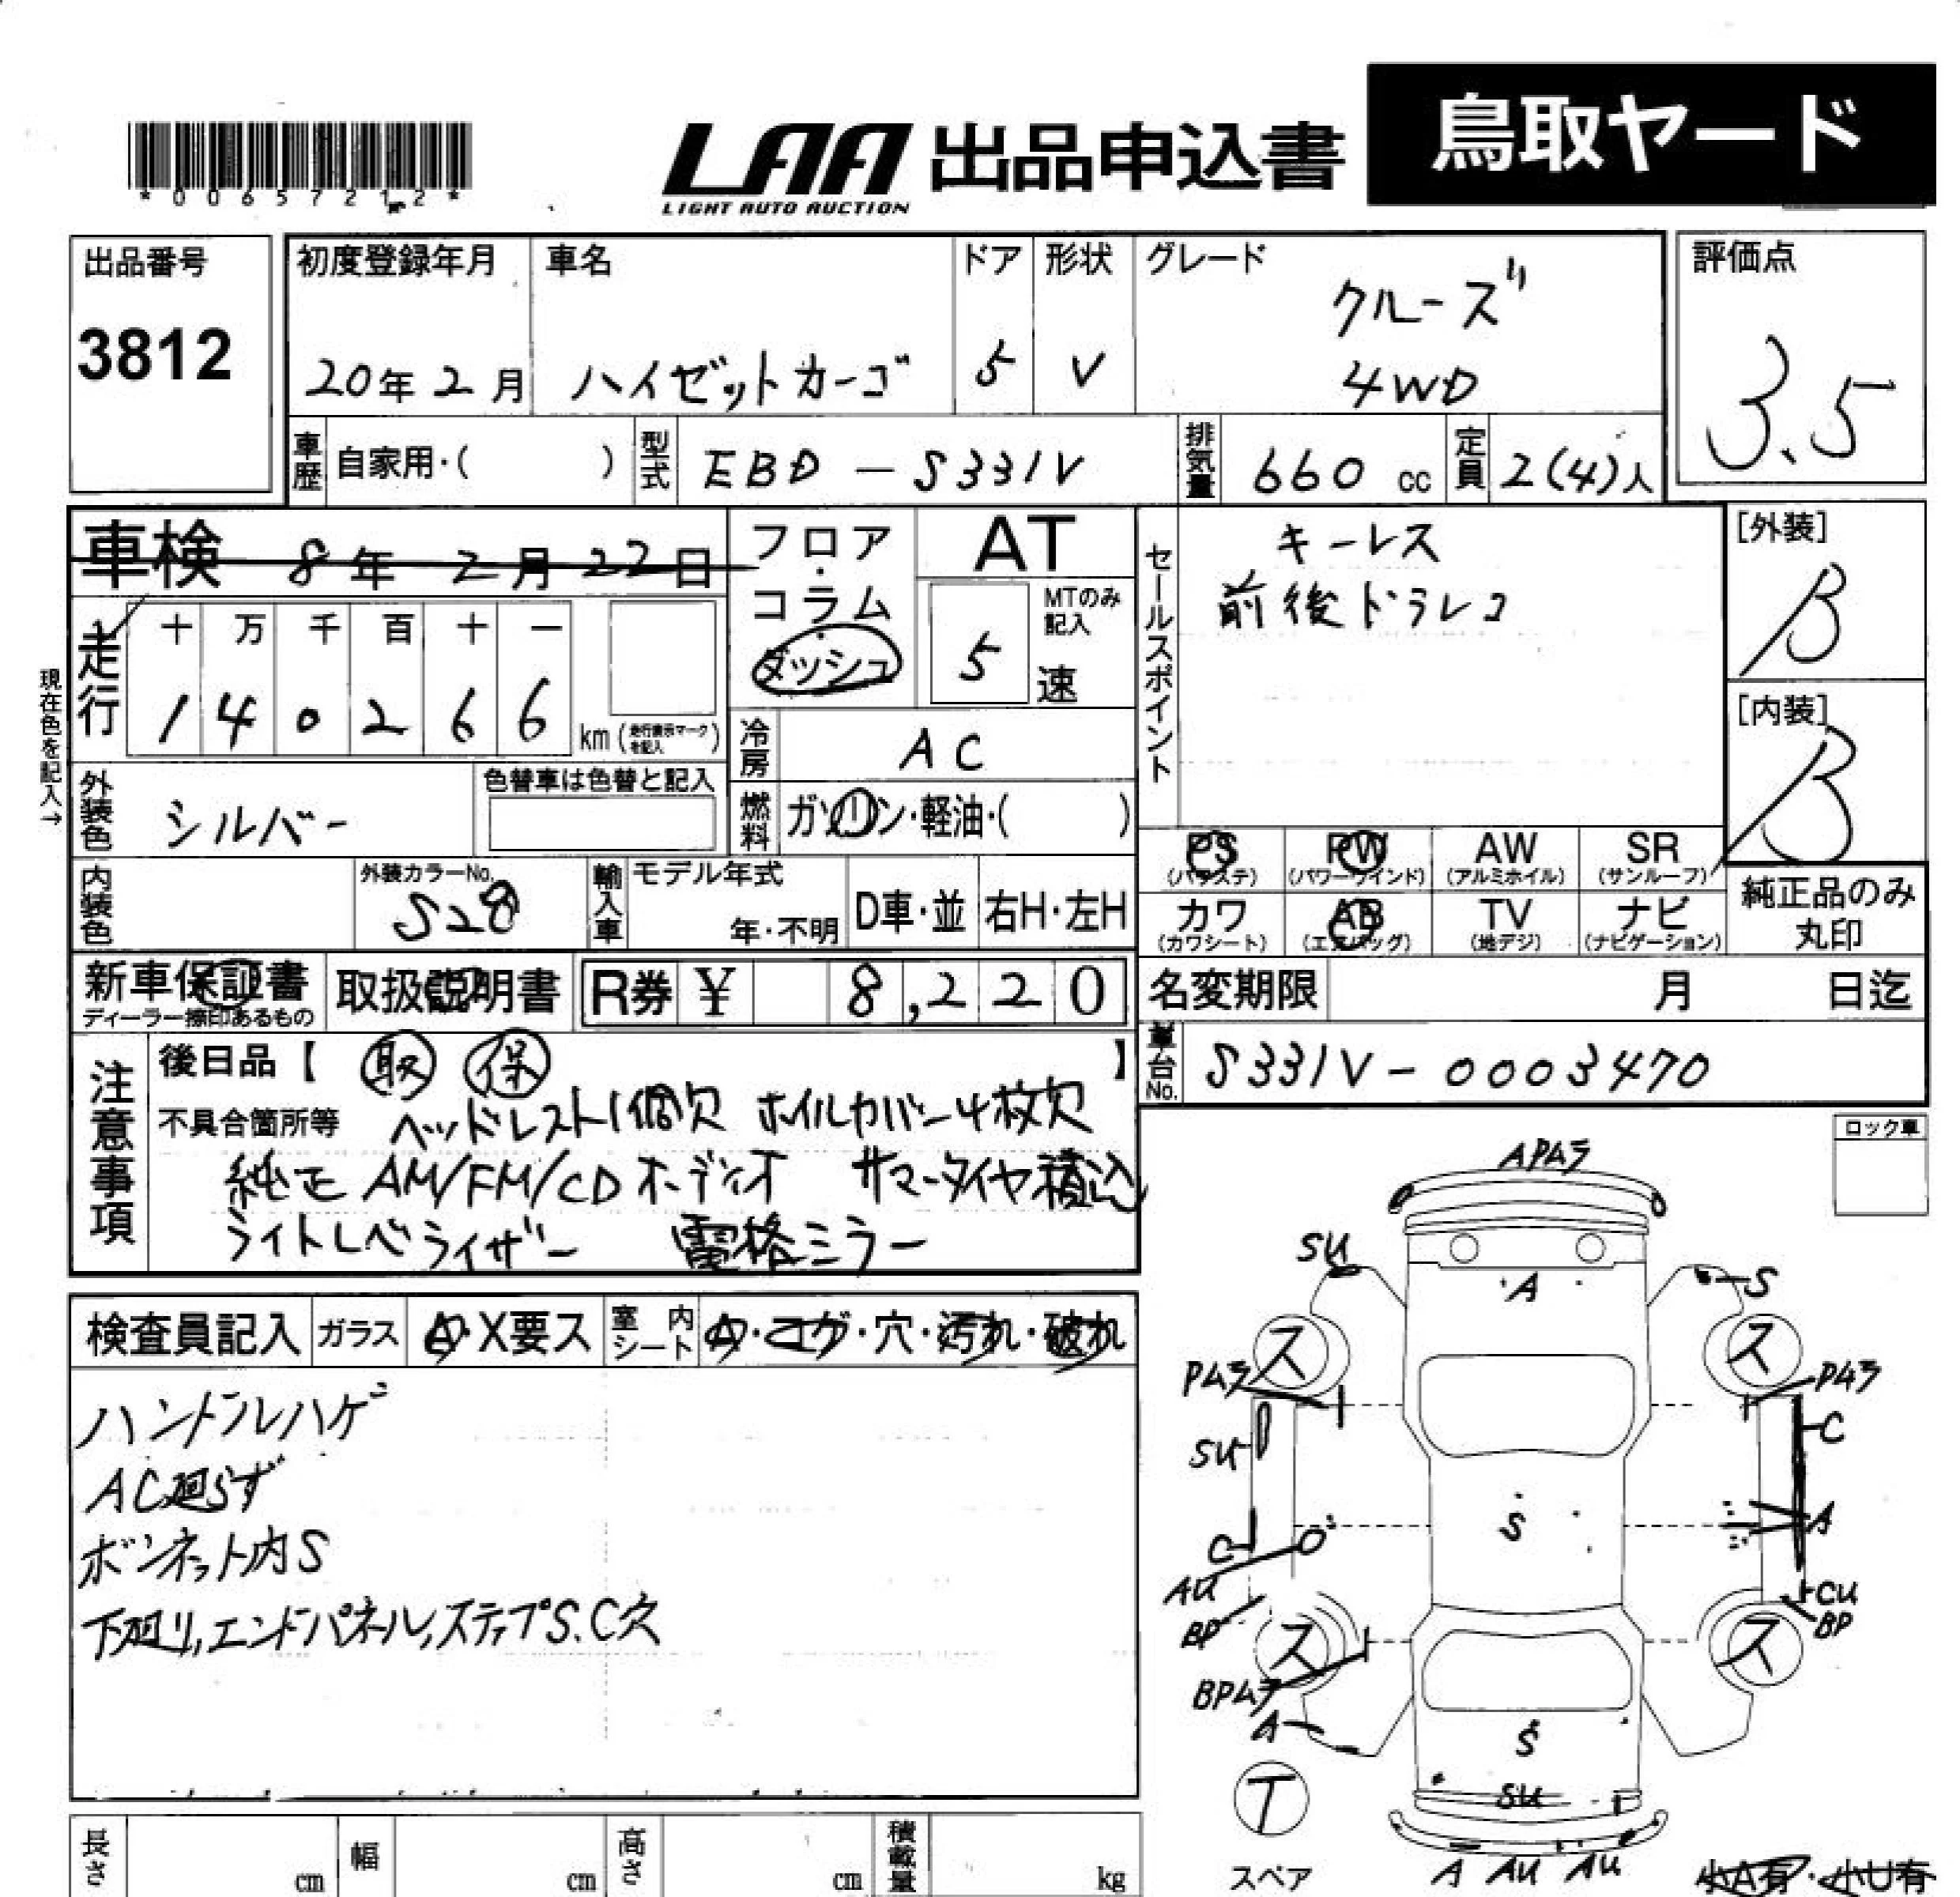 *00657212*
LAA 出品申込書 鳥取ヤード
LIGHT AUTO AUCTION
出品番号 初度登録年月 車名 ドア 形状 グレード 評価点
3812 20年2月 ハイゼットカーゴ 5 V クルーズ 3.5
4WD
車歴 自家用・( ) 型式 EBD-S331V 排気量 660cc 定員 2(4)人
車検 8年 2月 22日 フロア・コラム・ダッシュ AT
MTのみ記入 5速
セールスポイント キーレス
前後ドラレコ
[外装] B
[内装] B
走行 十 万 千 百 十 一
1 4 0 2 6 6 km (走行表示マークを記入)
現在色を記入→
冷房 AC
外装色 シルバー 色替車は色替と記入
燃料 ガソリン・軽油・( )
PS (パワステ) PW (パワーウインド) AW (アルミホイル) SR (サンルーフ)
カワ (カワシート) AB (エアバッグ) TV (地デジ) ナビ (ナビゲーション)
純正品のみ丸印
内装色 外装カラーNo. S28 輸入車 モデル年式 年・不明 D車・並 右H・左H
新車保証書 取扱説明書 R券 ¥ 8,220 名変期限 月 日迄
ディーラー捺印あるもの
車台No. S331V-0003470
注意事項 後日品【 取 保 】
不具合箇所等 ヘッドレスト1個欠 ホイルカバー4枚欠
純正 AM/FM/CDオーディオ サマータイヤ積込
ライトレベライザー 電格ミラー
ロック車
検査員記入 ガラス A・X要ス 室内シート A・コゲ・穴・汚れ・破れ
ハンドルハゲ
AC廻らず
ボンネット内S
下廻り,エンドパネル,ステップS.C穴
APムラ
SU
A
S
ス
ス
Pムラ
Pムラ
SU
C
S
A
C
AU
CU
BP
BP
ス
ス
BPムラ
A
S
SU
T
スペア
A AU AU
小A有・小U有
長さ cm 幅 cm 高さ cm 積載量 kg